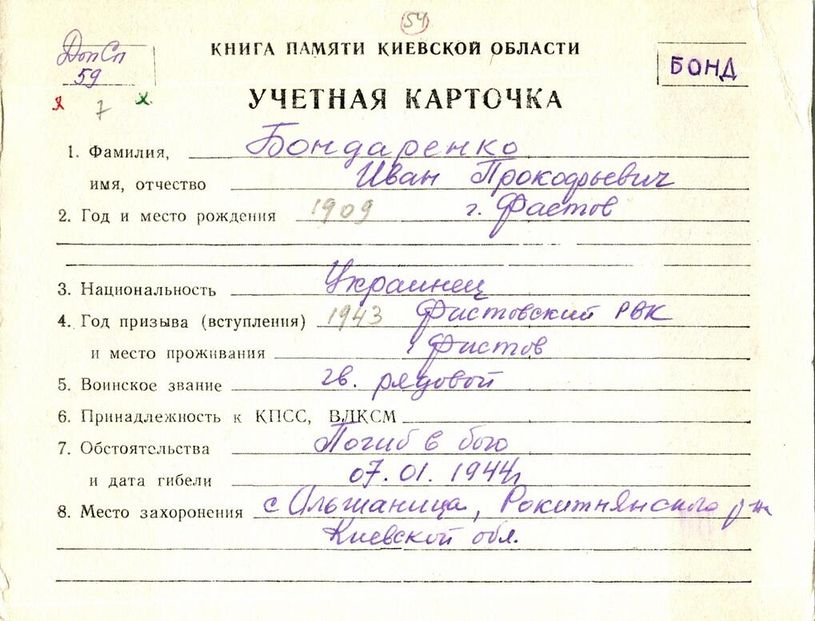 54
ДопСп
59
7
КНИГА ПАМЯТИ КИЕВСКОЙ ОБЛАСТИ
БОНД
УЧЕТНАЯ КАРТОЧКА
1. Фамилия, Бондаренко
имя, отчество Иван Прокофьевич
2. Год и место рождения 1909 г. Фастов
3. Национальность Украинец
4. Год призыва (вступления) 1943 Фастовский РВК
и место проживания Фастов
5. Воинское звание гв. рядовой
6. Принадлежность к КПСС, ВЛКСМ
7. Обстоятельства Погиб в бою
и дата гибели 07.01.1944г
8. Место захоронения с Ольшаница, Рокитнянского р-на
Киевской обл.